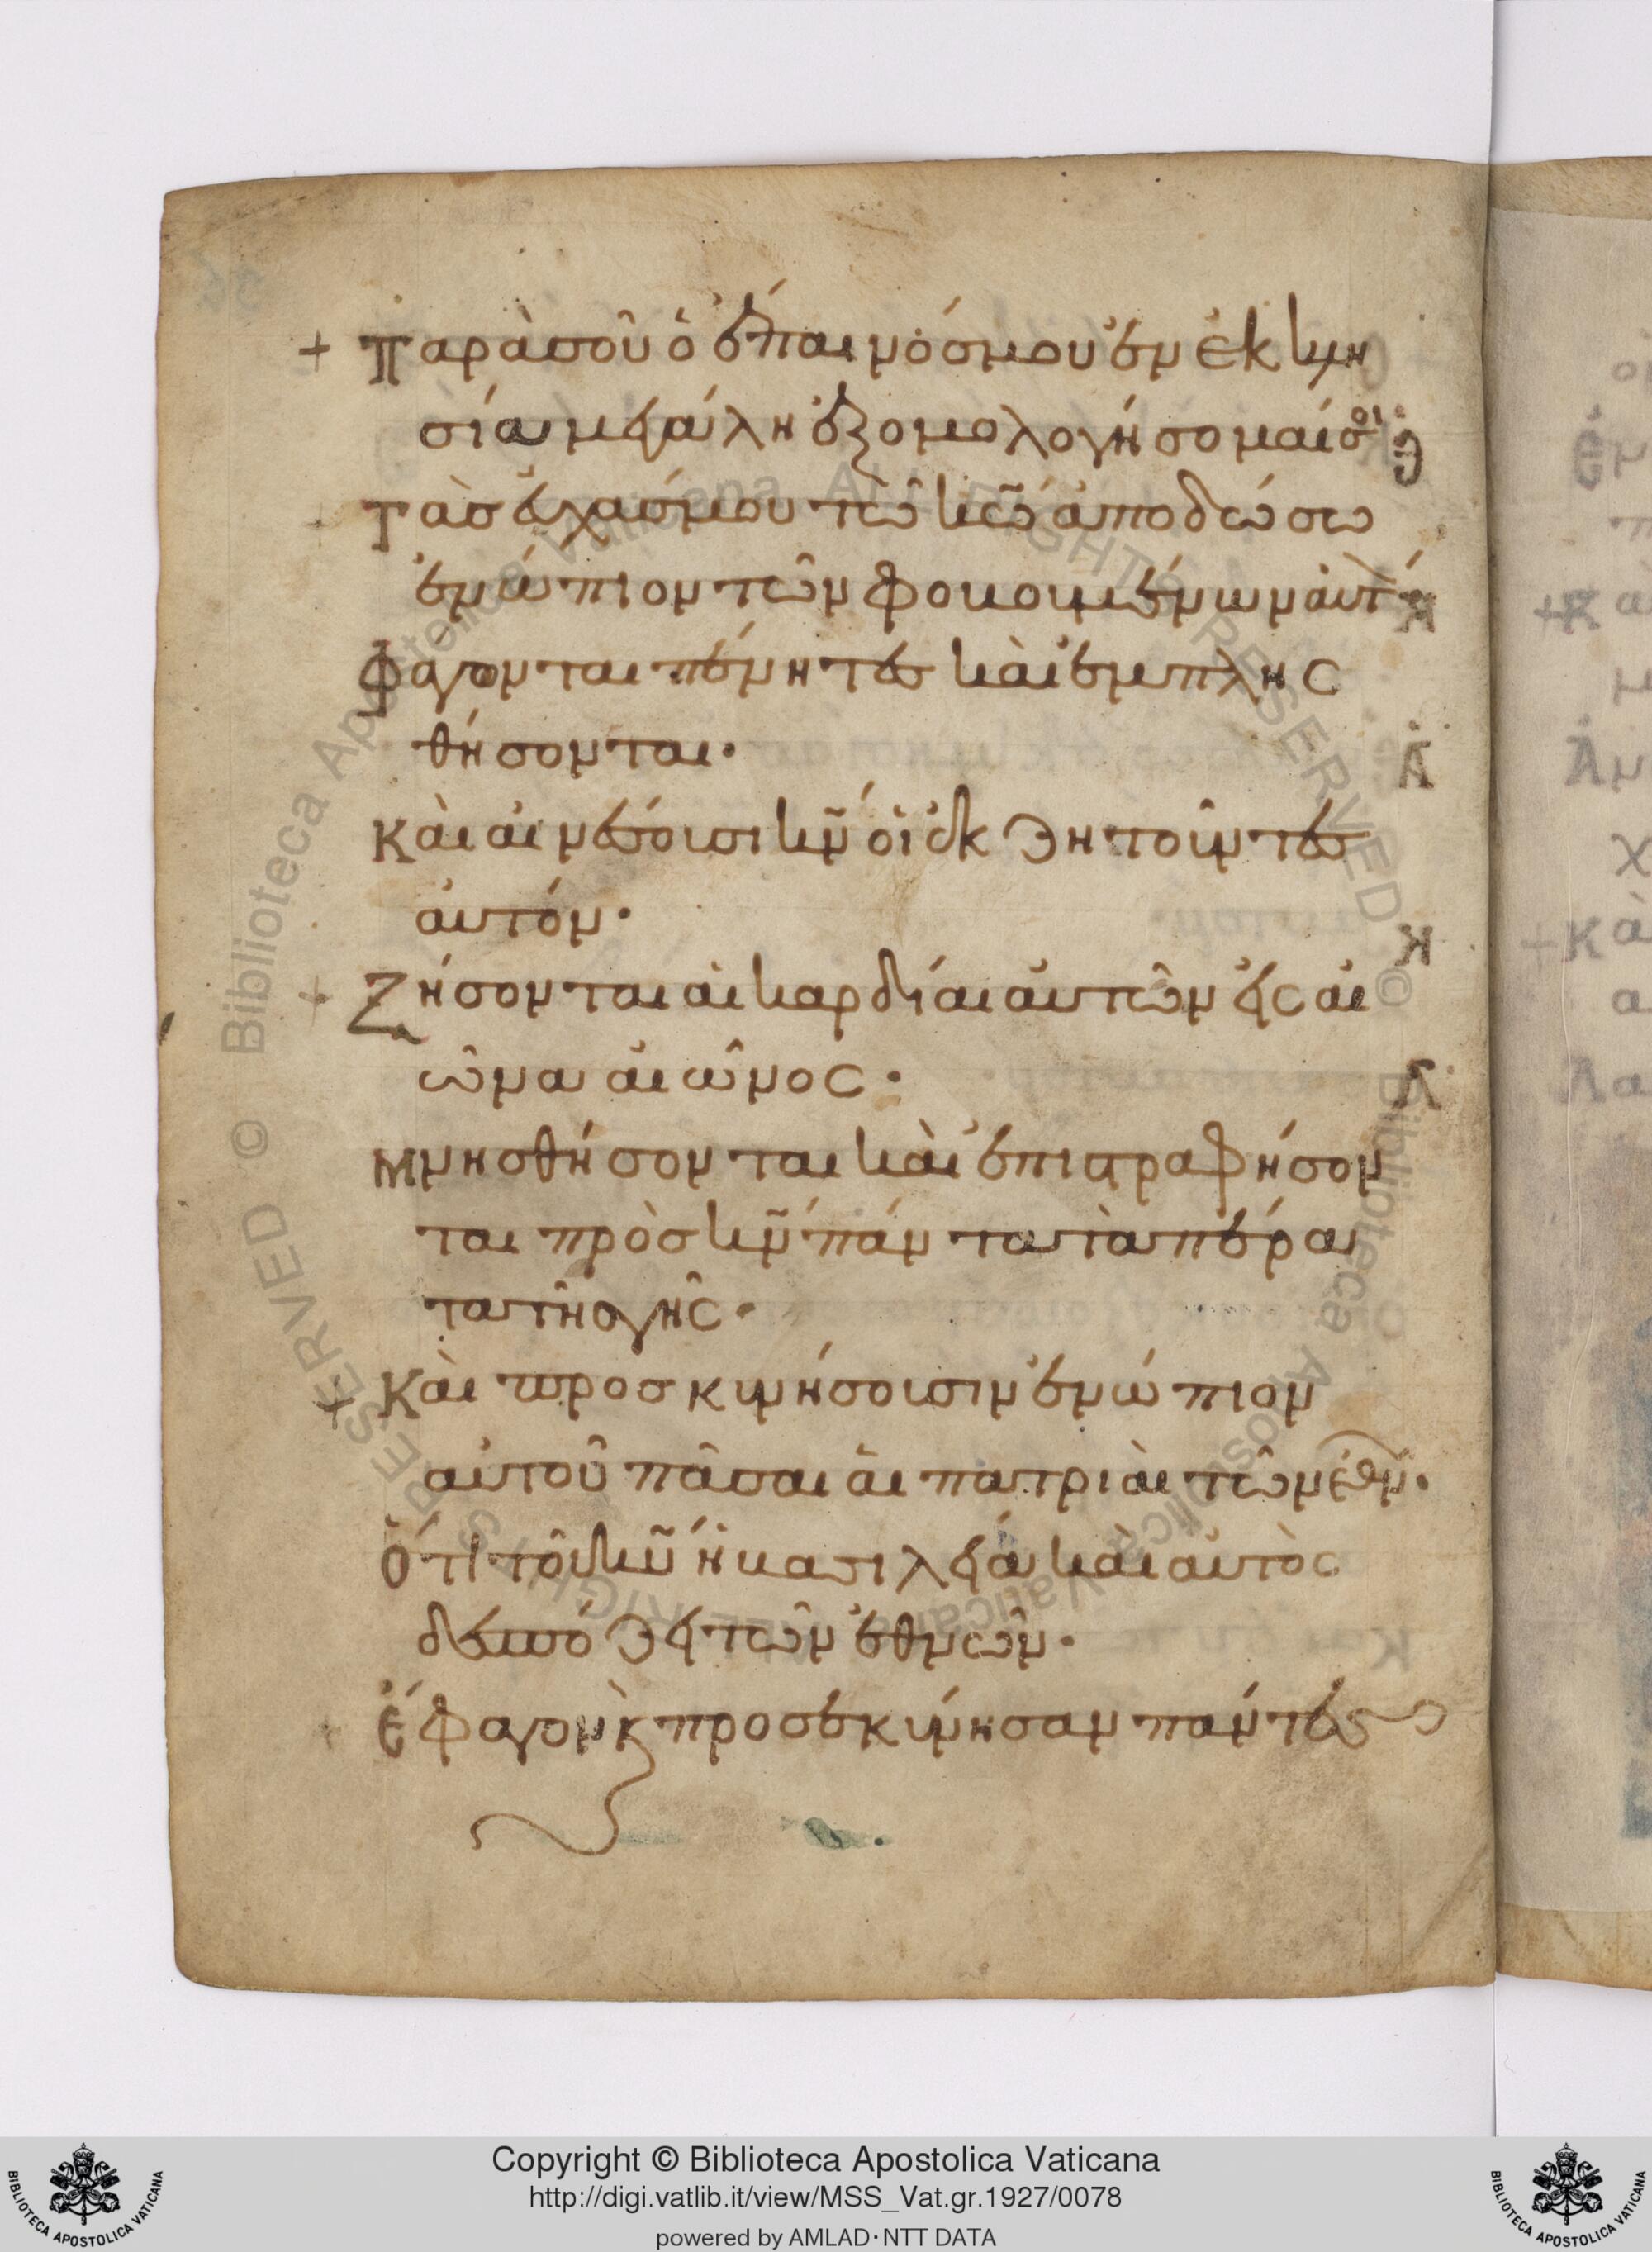 + Παρὰ σοῦ ὁ ἔπαινόσ μου ἐν ἐκκλη
σία μεγάλη ἐξομολογήσομαί σοι
Τὰσ εὐχάσ μου τῶ κῶ ἀποδώσω
ἐνώπιον τῶν φοβουμένων αὐτ
Φάγονται πένητεσ καὶ ἐμπλης
θήσονται·
Καὶ αἰνέσουσι κν οἱ ἐκζητοῦντεσ
αὐτόν·
Ζήσονται αἱ καρδίαι αὐτῶν εἰς αἰ
ῶνα αἰῶνος·
Μνησθήσονται καὶ ἐπιστραφήσον
ται πρὸσ κν πάντα τὰ πέρα
τα τῆσ γῆς·
+ Καὶ προσκυνήσουσιν ἐνώπιον
αὐτοῦ πᾶσαι αἱ πατριαὶ τῶν ἐθν·
Ὅτι τοῦ κυ ἡ βασιλεία καὶ αὐτὸς
δεσπόζει τῶν ἐθνῶν·
Ἔφαγον κ προσεκύνησαν πάντες
Copyright © Biblioteca Apostolica Vaticana
http://digi.vatlib.it/view/MSS_Vat.gr.1927/0078
powered by AMLAD·NTT DATA
BIBLIOTECA APOSTOLICA VATICANA
BIBLIOTECA APOSTOLICA VATICANA